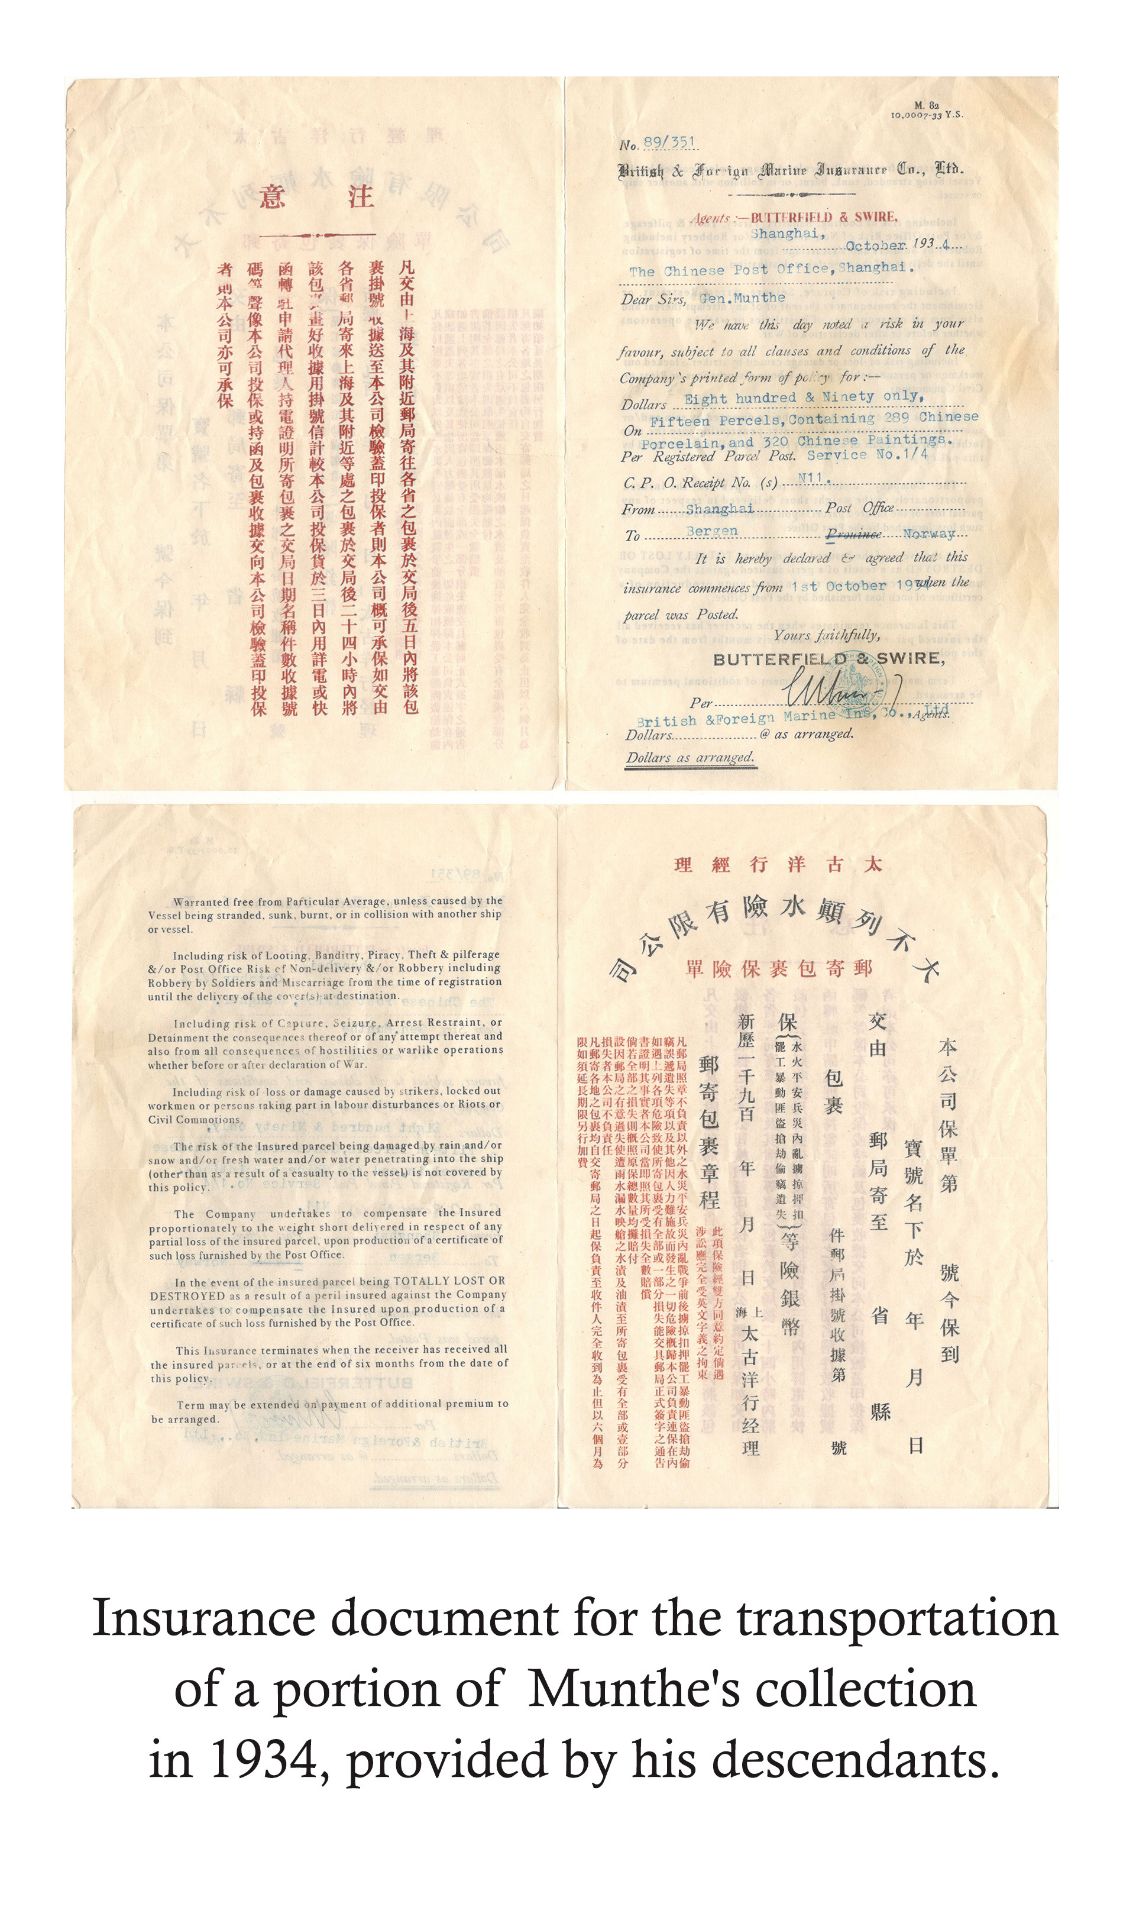 注意
凡交由上海及其附近郵局寄往各省之包裹於交局後五日內將該包
裹掛號收據送至本公司檢驗蓋印投保者則本公司概可承保如交由
各省郵局寄來上海及其附近等處之包裹於交局後二十四小時內將
該包裹畫好收據用掛號信計較本公司投保貨於三日內用詳電或快
函轉駐申請代理人持電證明所寄包裹之交局日期名稱件數收據號
碼等聲像本公司投保或持函及包裹收據交向本公司檢驗蓋印投保
者則本公司亦可承保
M. 82
10,0007-33 Y.S.
No. 89/351
British & Foreign Marine Insurance Co., Ltd.
Agents:—BUTTERFIELD & SWIRE,
Shanghai, October 1934
The Chinese Post Office, Shanghai.
Dear Sirs, Gen.Munthe
We have this day noted a risk in your
favour, subject to all clauses and conditions of the
Company's printed form of policy for:—
Dollars Eight hundred & Ninety only,
On Fifteen Percels, Containing 289 Chinese
Porcelain, and 320 Chinese Paintings.
Per Registered Parcel Post. Service No.1/4
C. P. O. Receipt No. (s) N11.
From Shanghai Post Office
To Bergen Province Norway
It is hereby declared & agreed that this
insurance commences from 1st October 1934 when the
parcel was Posted.
Yours faithfully,
BUTTERFIELD & SWIRE,
Per
British &Foreign Marine Ins, Co., Ltd Agents.
Dollars @ as arranged.
Dollars as arranged.
Warranted free from Particular Average, unless caused by the
Vessel being stranded, sunk, burnt, or in collision with another ship
or vessel.
Including risk of Looting, Banditry, Piracy, Theft & pilferage
&/or Post Office Risk of Non-delivery &/or Robbery including
Robbery by Soldiers and Miscarriage from the time of registration
until the delivery of the cover(s) at destination.
Including risk of Capture, Seizure, Arrest Restraint, or
Detainment the consequences thereof or of any attempt thereat and
also from all consequences of hostilities or warlike operations
whether before or after declaration of War.
Including risk of loss or damage caused by strikers, locked out
workmen or persons taking part in labour disturbances or Riots or
Civil Commotions.
The risk of the Insured parcel being damaged by rain and/or
snow and/or fresh water and/or water penetrating into the ship
(other than as a result of a casualty to the vessel) is not covered by
this policy.
The Company undertakes to compensate the Insured
proportionately to the weight short delivered in respect of any
partial loss of the insured parcel, upon production of a certificate of
such loss furnished by the Post Office.
In the event of the insured parcel being TOTALLY LOST OR
DESTROYED as a result of a peril insured against the Company
undertakes to compensate the Insured upon production of a
certificate of such loss furnished by the Post Office.
This Insurance terminates when the receiver has received all
the insured parcels, or at the end of six months from the date of
this policy.
Term may be extended on payment of additional premium to
be arranged.
太古洋行經理
大不列顚水險有限公司
郵寄包裹保險單
本公司保單第 號今保到
寶號名下於 年 月 日
交由 郵局寄至 省 縣
包裹 件郵局掛號收據第 號
保(水火平安兵災內亂擄掠押扣
罷工暴動匪盜搶劫偷竊遺失)等險銀幣
新歷一千九百 年 月 日 上海太古洋行经理
郵寄包裹章程 此項保險經雙方同意約定倘遇
涉訟應完全受英文字義之拘束
凡郵局照章不負責以外之水災平安兵災內亂戰爭前後擄掠扣押罷工暴動匪盜搶劫偷
竊誤遞遺失等項以及其他因人力難施故而發生之一切危險概歸本公司負責連保在內
如遇上列各項危險致使所寄包裹受有全部或一部分損失能交具郵局正式簽字之通告
書證明其事實者本公司當即照其所受損失全數賠償
倘若全部之損失則概照原保總數量均攤賠付
設因郵局之有意過失使遭雨水漏水映艙之水漬及油漬至所寄包裹受有全部或壹部分
損失者本公司不負責任
凡郵寄各地之包裹均自交寄郵局之日起保負責至收件人完全收到為止但以六個月為
限如須延長期限另行加費
Insurance document for the transportation
of a portion of Munthe's collection
in 1934, provided by his descendants.